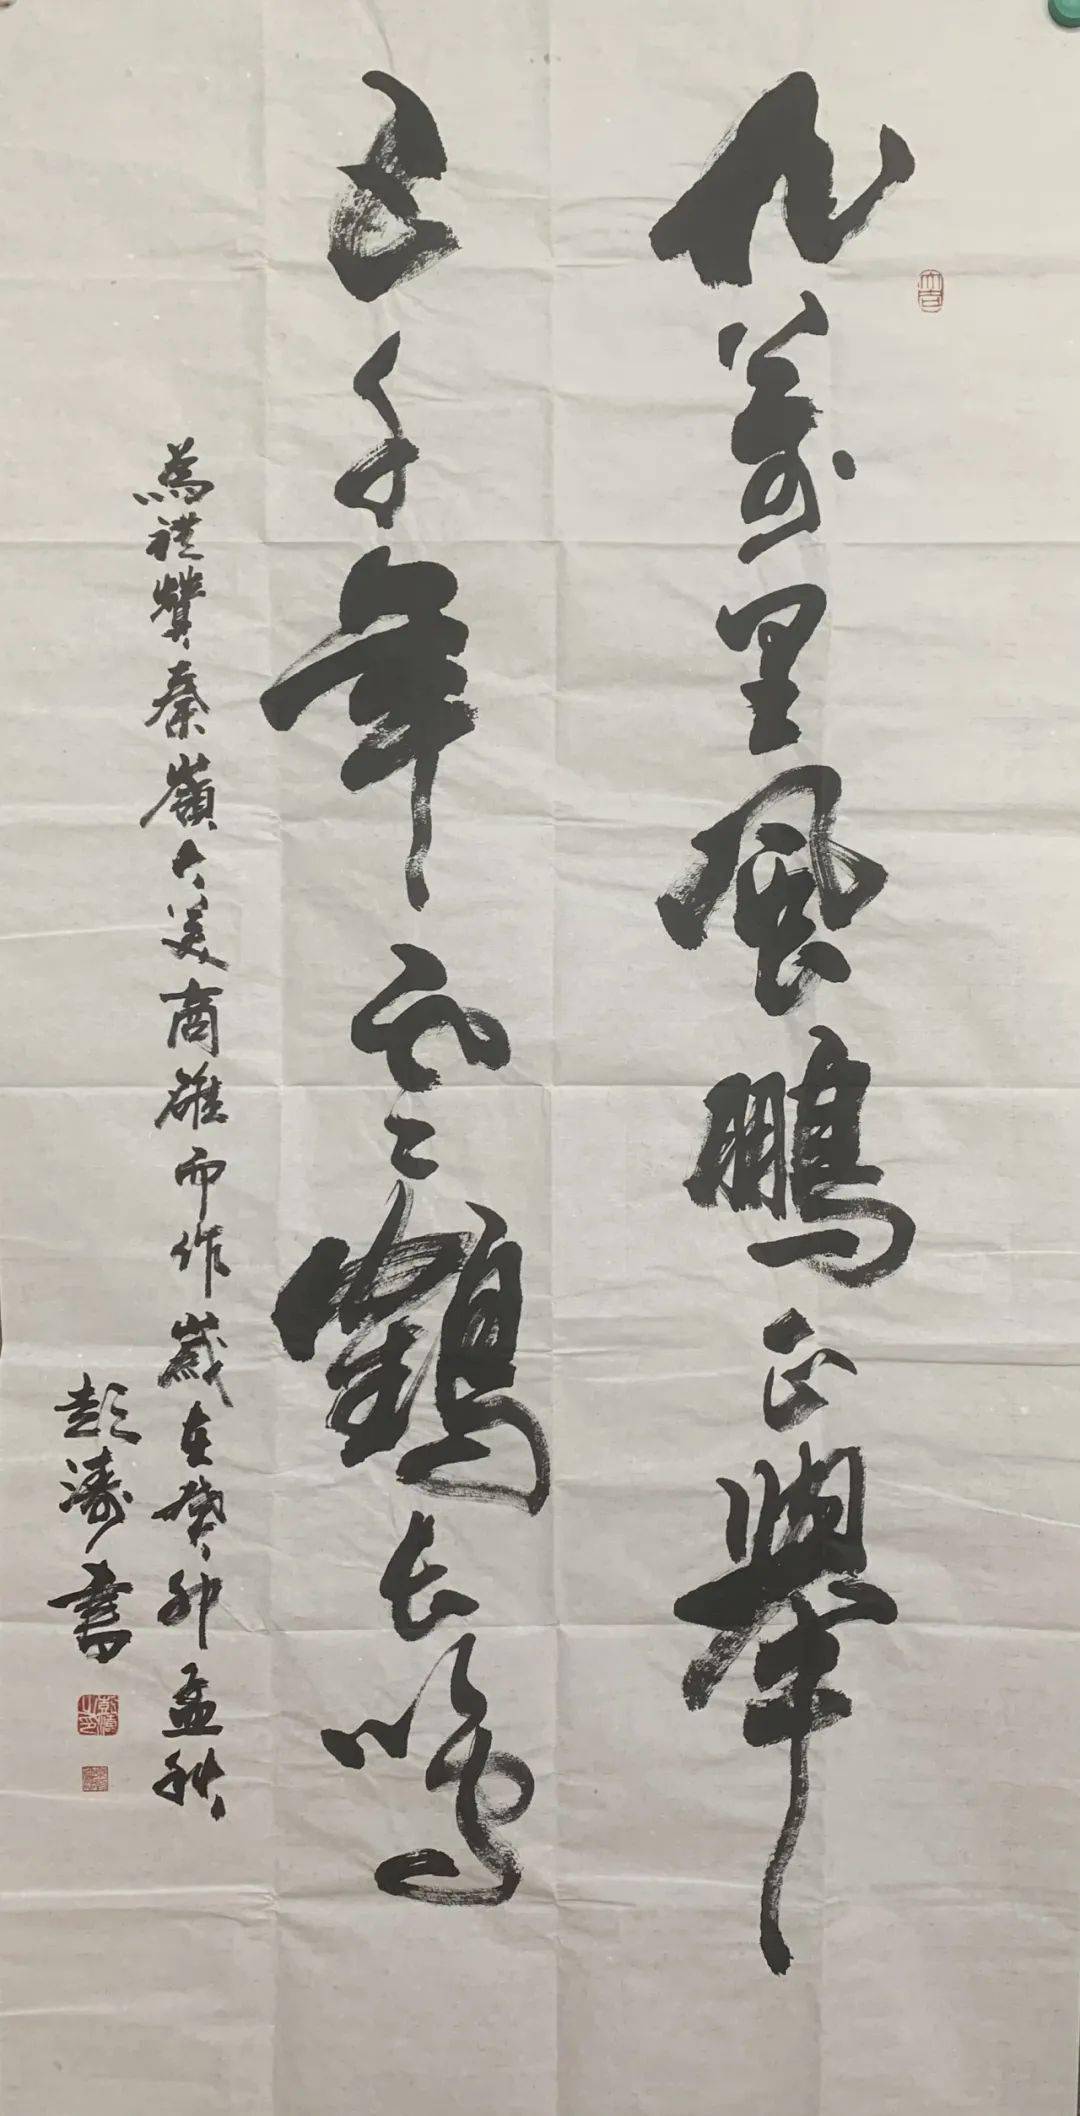 九萬里風鵬正舉
五千年雲鶴長鳴
為禮贊秦嶺大美商雒而作歲在癸卯孟秋
彭濤書
大吉
彭濤之印